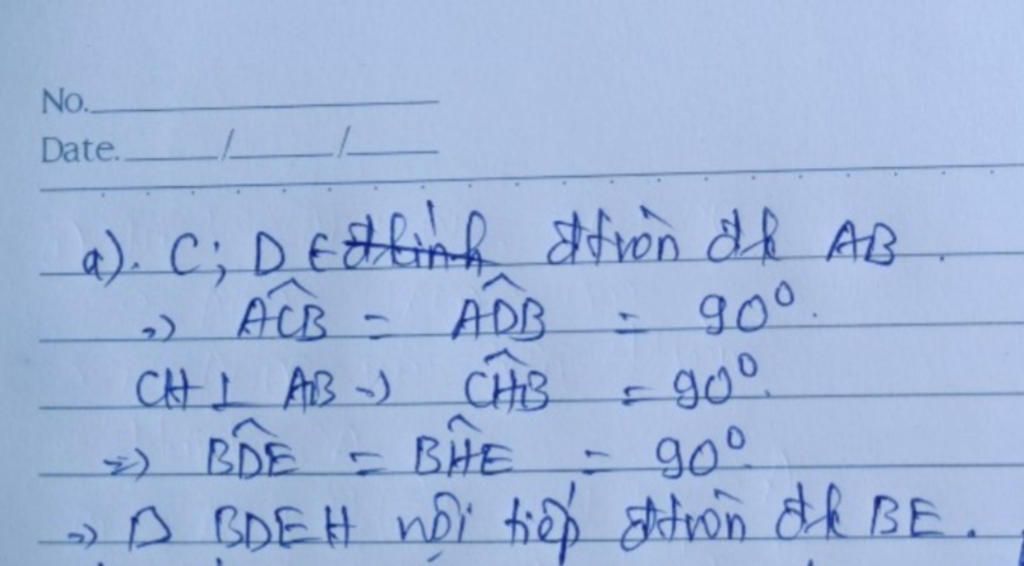 No.
Date. / /
a). C; D ∈ đtròn đk AB.
=> ACB̂ = ADB̂ = 90⁰.
CH ⊥ AB => CHB̂ = 90⁰.
=> BDÊ = BHÊ = 90⁰
=> BDEH nội tiếp đtròn đk BE.